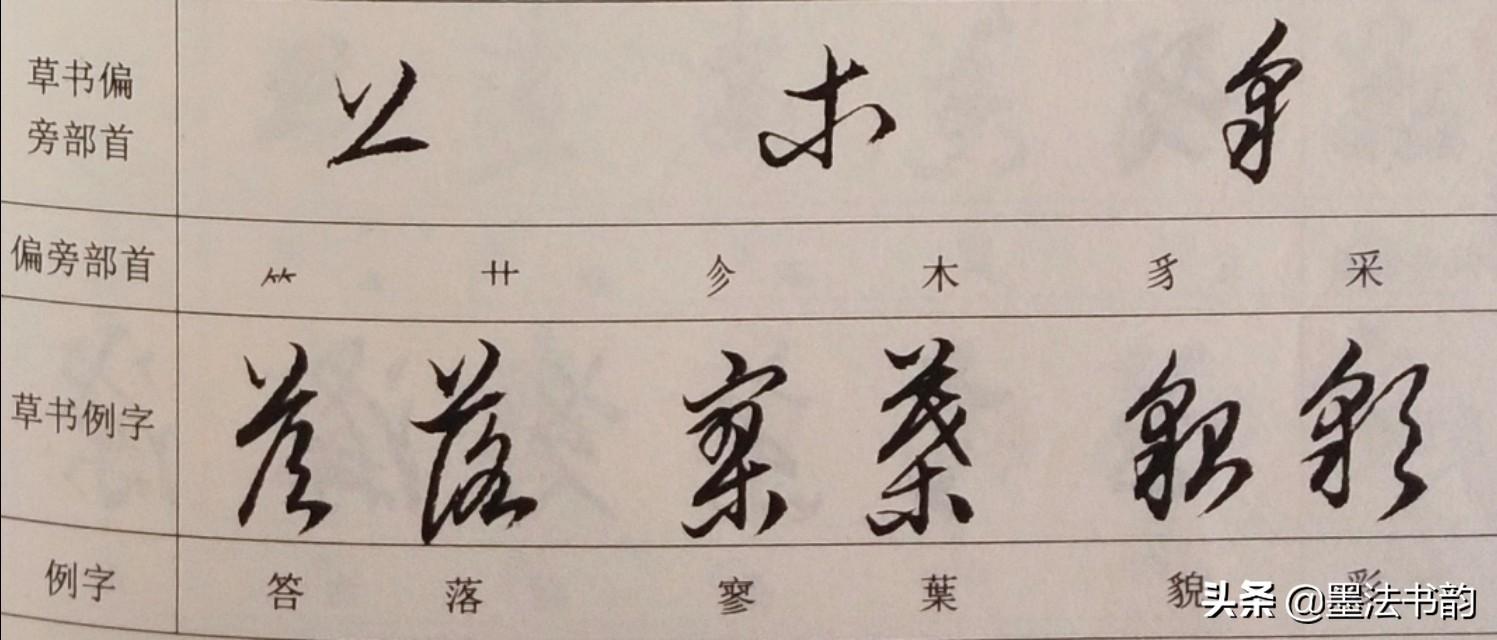 草书偏
旁部首
偏旁部首 ⺮ 艹 㐱 木 豸 采
草书例字 答 落 寥 葉 貌 彩
例字 答 落 寥 葉 貌 彩
头条 @墨法书韵